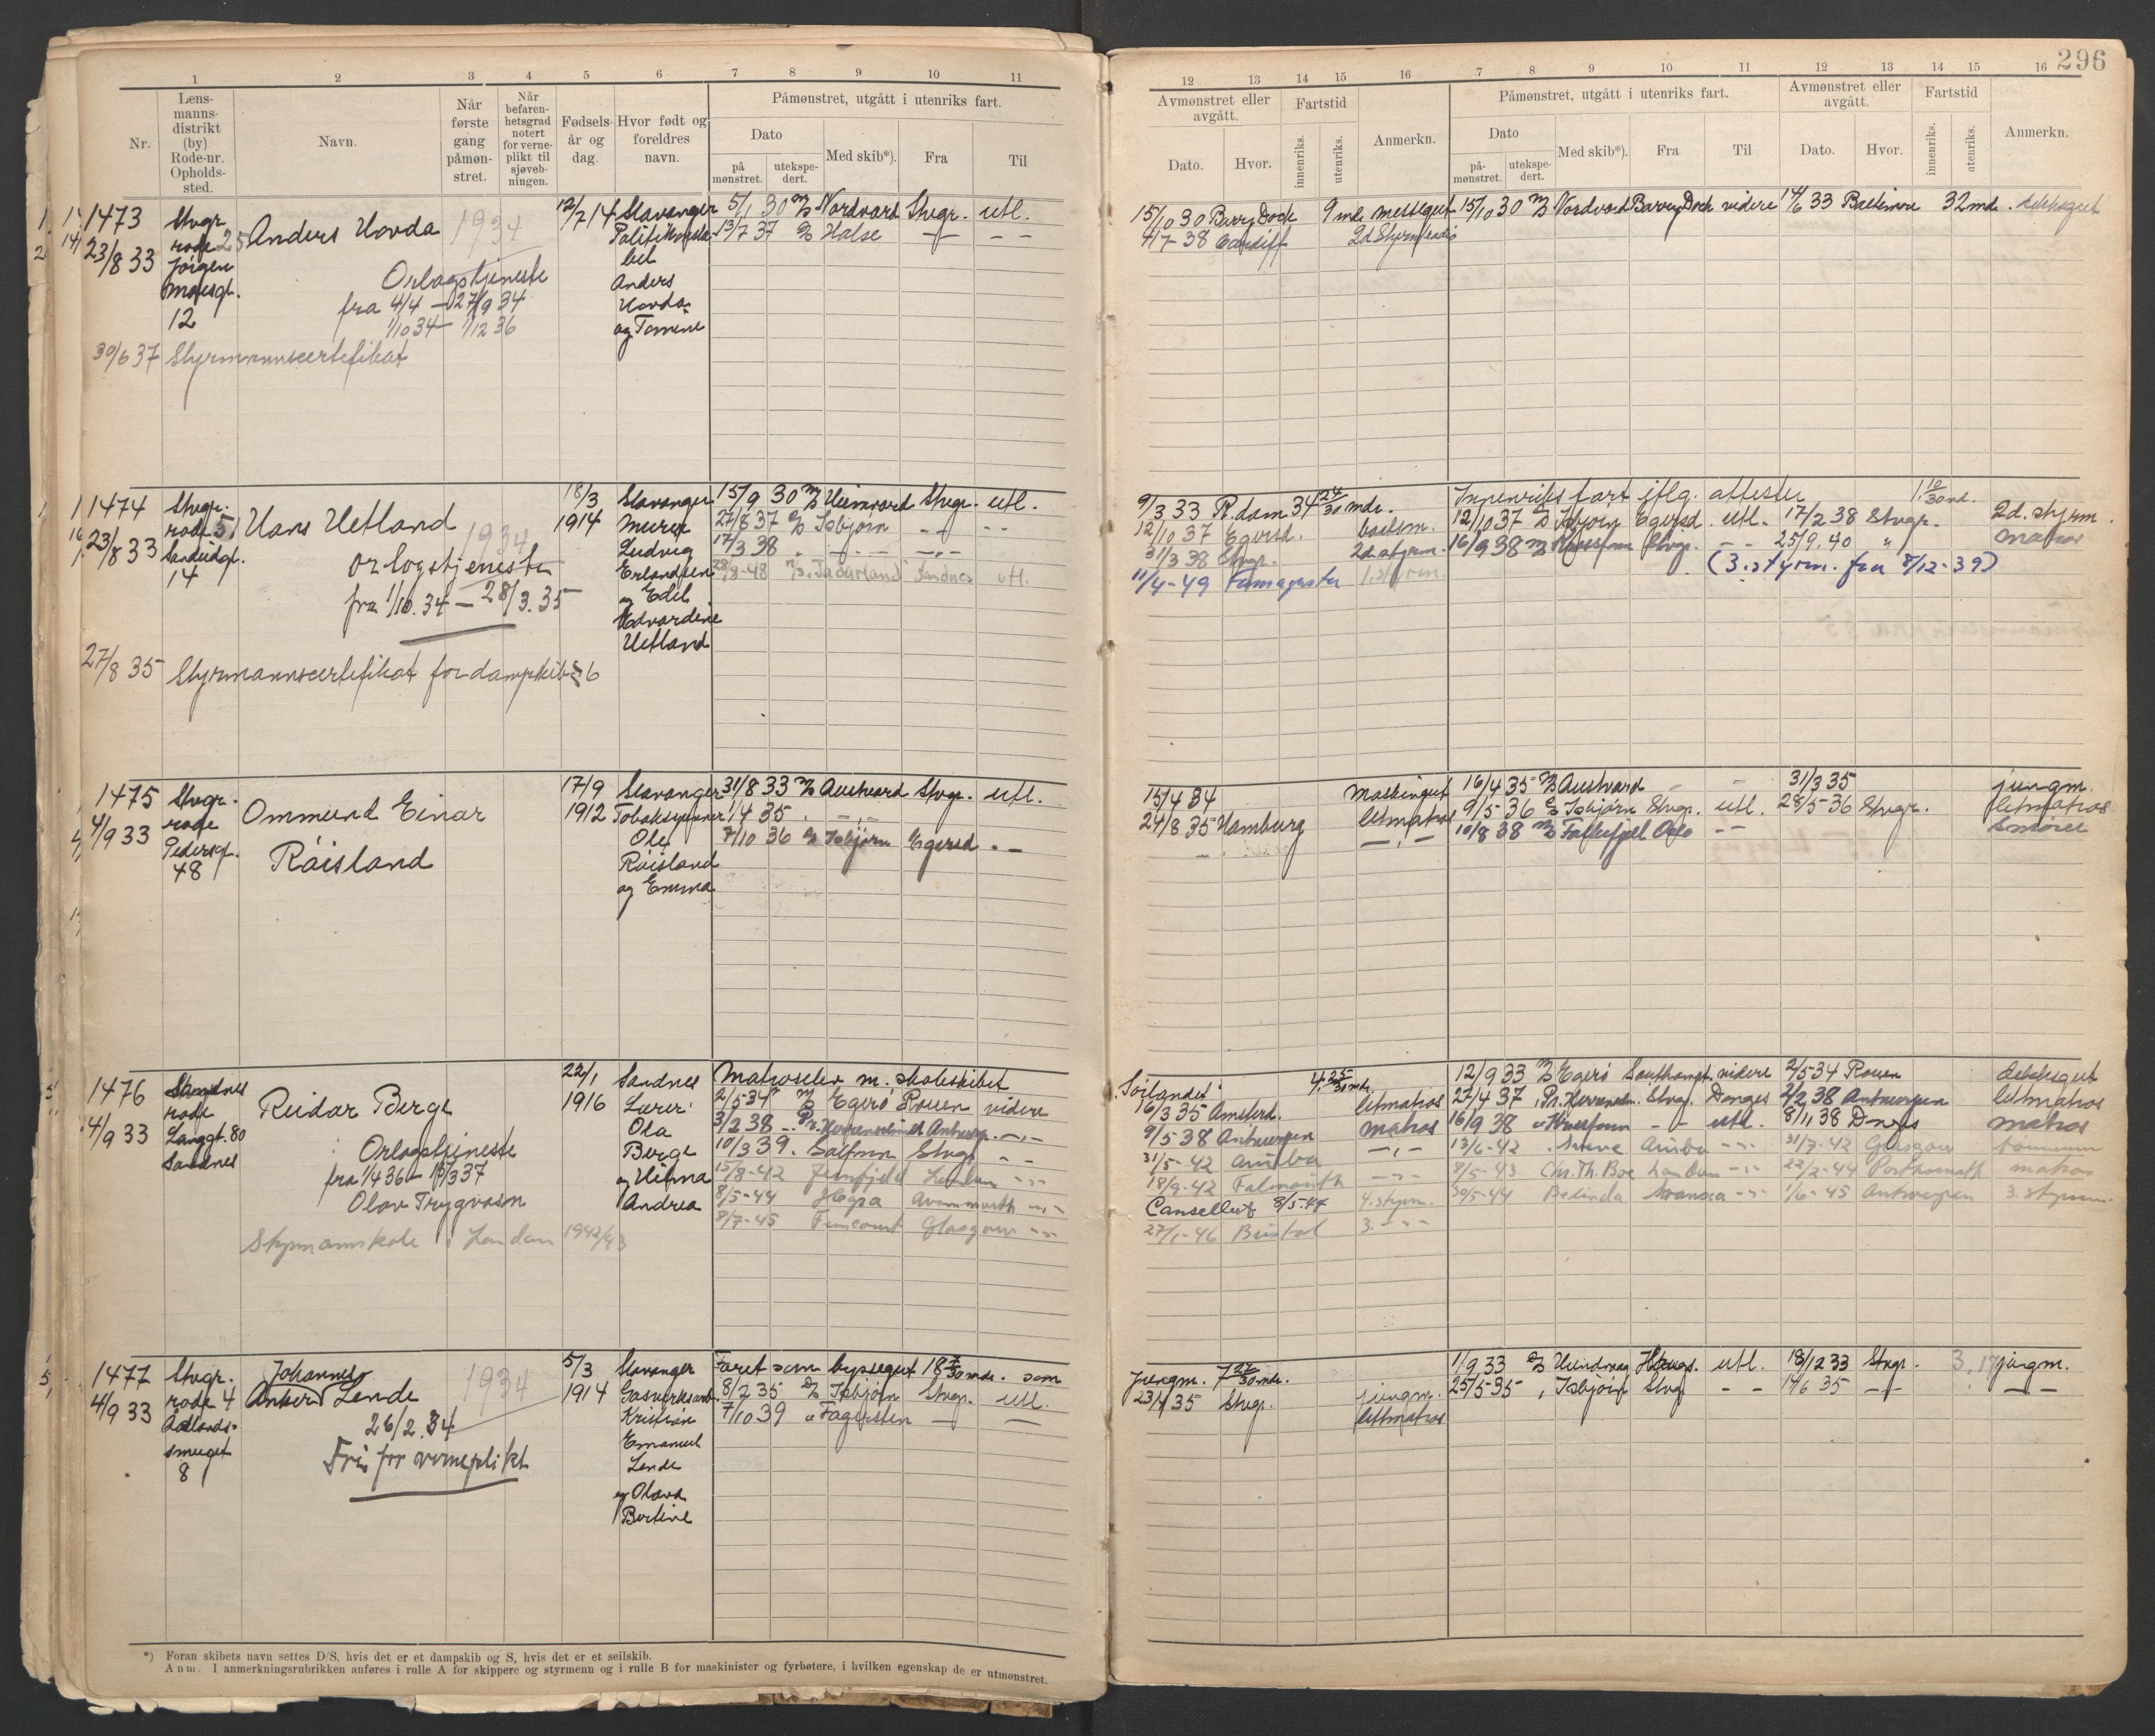 296
1 2 3 4 5 6 7 8 9 10 11
12 13 14 15 16 7 8 9 10 11 12 13 14 15 16
Nr.
Lens-
manns-
distrikt
(by)
Rode-nr.
Opholds-
sted.
Navn.
Når
første
gang
påmøn-
stret.
Når
befaren-
hetsgrad
notert
for verne-
plikt til
sjøveb-
ningen.
Fødsels-
år og
dag.
Hvor født og
foreldres
navn.
Påmønstret, utgått i utenriks fart.
Dato
på
mønstret.
utekspe-
dert.
Med skib*).
Fra
Til
Avmønstret eller
avgått.
Dato.
Hvor.
Fartstid
innenriks.
utenriks.
Anmerkn.
Påmønstret, utgått i utenriks fart.
Dato
på-
mønstret.
utekspe-
dert.
Med skib*).
Fra
Til
Avmønstret eller
avgått.
Dato.
Hvor.
Fartstid
innenriks.
utenriks.
Anmerkn.
1473
23/8 33
Stvgr.
rode 25
Jørgen
Moesgt.
12
Anders Hovda
1934
Orlogstjeneste
fra 4/4 - 27/9 34
1/10 34 - 1/12 36
30/6 37 Styrmannscertifikat
12/7 14
Stavanger
Anders
Hovda
og Tomine
5/1 30 M/S Nordvard Stvgr. utl.
13/7 37 D/S Halse — — —
15/10 30 Barry Dock 9 mdr messegut
4/7-38 Cardiff
15/10 30 M/S Nordvard Barry Dock videre 14/6 33 Baltimore 32 md. dekksgut
1474
23/8 33
Stvgr.
rode 5
Sandeidgt.
14
Hans Hetland
1934
orlogstjeneste
fra 1/10.34 — 28/3.35
27/8 35 Styrmannscertifikat for dampskib
18/3
1914
Stavanger
Murer
Ludvig
Erlandsen
og Edel
Edvardine
Hetland
15/9 30 M/S Heimvard Stvgr. utl.
27/8 37 D/S Isbjørn — — - -
17/3 38 " — — — —
28/8-48 M/S "Jadarland" Sandnes utl.
9/3 33 R.dam 34 24/30 mdr.
12/10 37 Egersd. baatsm.
31/3 38 Stvgr. 2d. styrm.
11/4-49 Famagusta 1. styrm.
Innenriks fart iflg. attester 1 10/30 md.
12/10 37 D/S Isbjørn Egersd. utl. 17/2 38 Stvgr. 2d. styrm.
16/9 38 M/S Stvgr. - - 25/9.40 " Matros
(3. styrm. fra 8/12-39)
1475
4/9 33
Stvgr.
rode
Pedersgt.
48
Ommund Einar
Råisland
17/9
1912
Stavanger
Tobakspinner
Ole
Råisland
og Emma
31/8 33 M/S Austvard Stvgr. utl.
1/4 35 . — " —
7/10 36 D/S Isbjørn Egersd - —
15/4 34 Maskingut
24/8 35 Hamburg letmatros
— " —
16/4 35 M/S Austvard - - 31/3 35 jungm.
9/5 36 D/S Isbjørn Stvgr. utl. 28/5-36 Stvgr. letmatros
10/8 38 M/S Falkefjell Oslo - - Smører
1476
4/9 33
Sandnes
rode
Langgt. 80
Sandnes
Reidar Berge
Orlogstjeneste
fra 1/4 36 - 15/3 37
Olav Trygvason
Styrmannskole i London 1942/43
22/1
1916
Sandnes
Lærer
Ola
Berge
og Helena
Andrea
Matroselev m. skoleskibet
2/5-34 M/S Egerø Rouen videre
3/2 38 Antwerp. — " —
10/3 39. Solfonn Stvgr - -
15/8-42 London
8/5-44 Avonmouth
8/7-45 Glasgow
Sørlandet 4 25/30 mdr.
6/3 35 Amsterd. letmatros
9/5-38 Antwerpen matros
31/5-42 Aruba — " —
18/9-42 Falmouth
Cansellert 8/5-44 4. styrm.
27/1-46 Bristol 3.
12/9 33 M/S Egerø Southampt videre 2/5-34 Rouen dekksgut
27/4 37 Stvgr. Donges 2/2 38 Antwerpen letmatros
16/9 38 " - - utl. 8/11 38 matros
13/6-42 Aruba 31/7-42 Glasgow tømmerm
8/5-43 Chr. Th. Boe London 22/2-44 Portsmouth matros
30/5-44 Belinda Swansea 1/6-45 Antwerpen 3. styrm.
1477
4/9 33
Stvgr.
rode 4
Aadlands-
smuget
8
Johannes
Anker Lende
1934
26/2.34
Fri for verneplikt
5/3
1914
Stavanger
Gasverksarb.
Kristian
Emanuel
Lende
og Olava
Bertine
Faret som byssegut 18 mdr. som
8/2 35 D/S Isbjørn Stvgr. utl.
7/10 39 " Fagersten — —
jungm. 7 27/30 mdr.
23/4 35 Stvgr. jungm.
letmatros
1/9 33 D/S Haugs. utl. 18/12 33 Stvgr. jungm.
25/5-35 " Isbjørn Stvgr - - 14/6 35 — " — — " —
*) Foran skibets navn settes D/S. hvis det er et dampskib og S, hvis det er et seilskib.
Anm. I anmerkningsrubrikken anføres i rulle A for skippere og styrmenn og i rulle B for maskinister og fyrbøtere, i hvilken egenskap de er utmønstret.